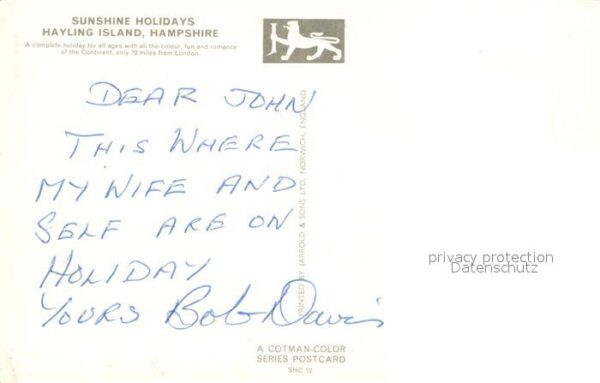 SUNSHINE HOLIDAYS
HAYLING ISLAND, HAMPSHIRE
A complete holiday for all ages with all the colour, fun and romance
of the Continent, only 70 miles from London.
DEAR JOHN
THIS WHERE
MY WIFE AND
SELF ARE ON
HOLIDAY
YOURS Bob Davis
PRINTED BY JARROLD & SONS LTD, NORWICH, ENGLAND
privacy protection
Datenschutz
A COTMAN-COLOR
SERIES POSTCARD
SHC 12